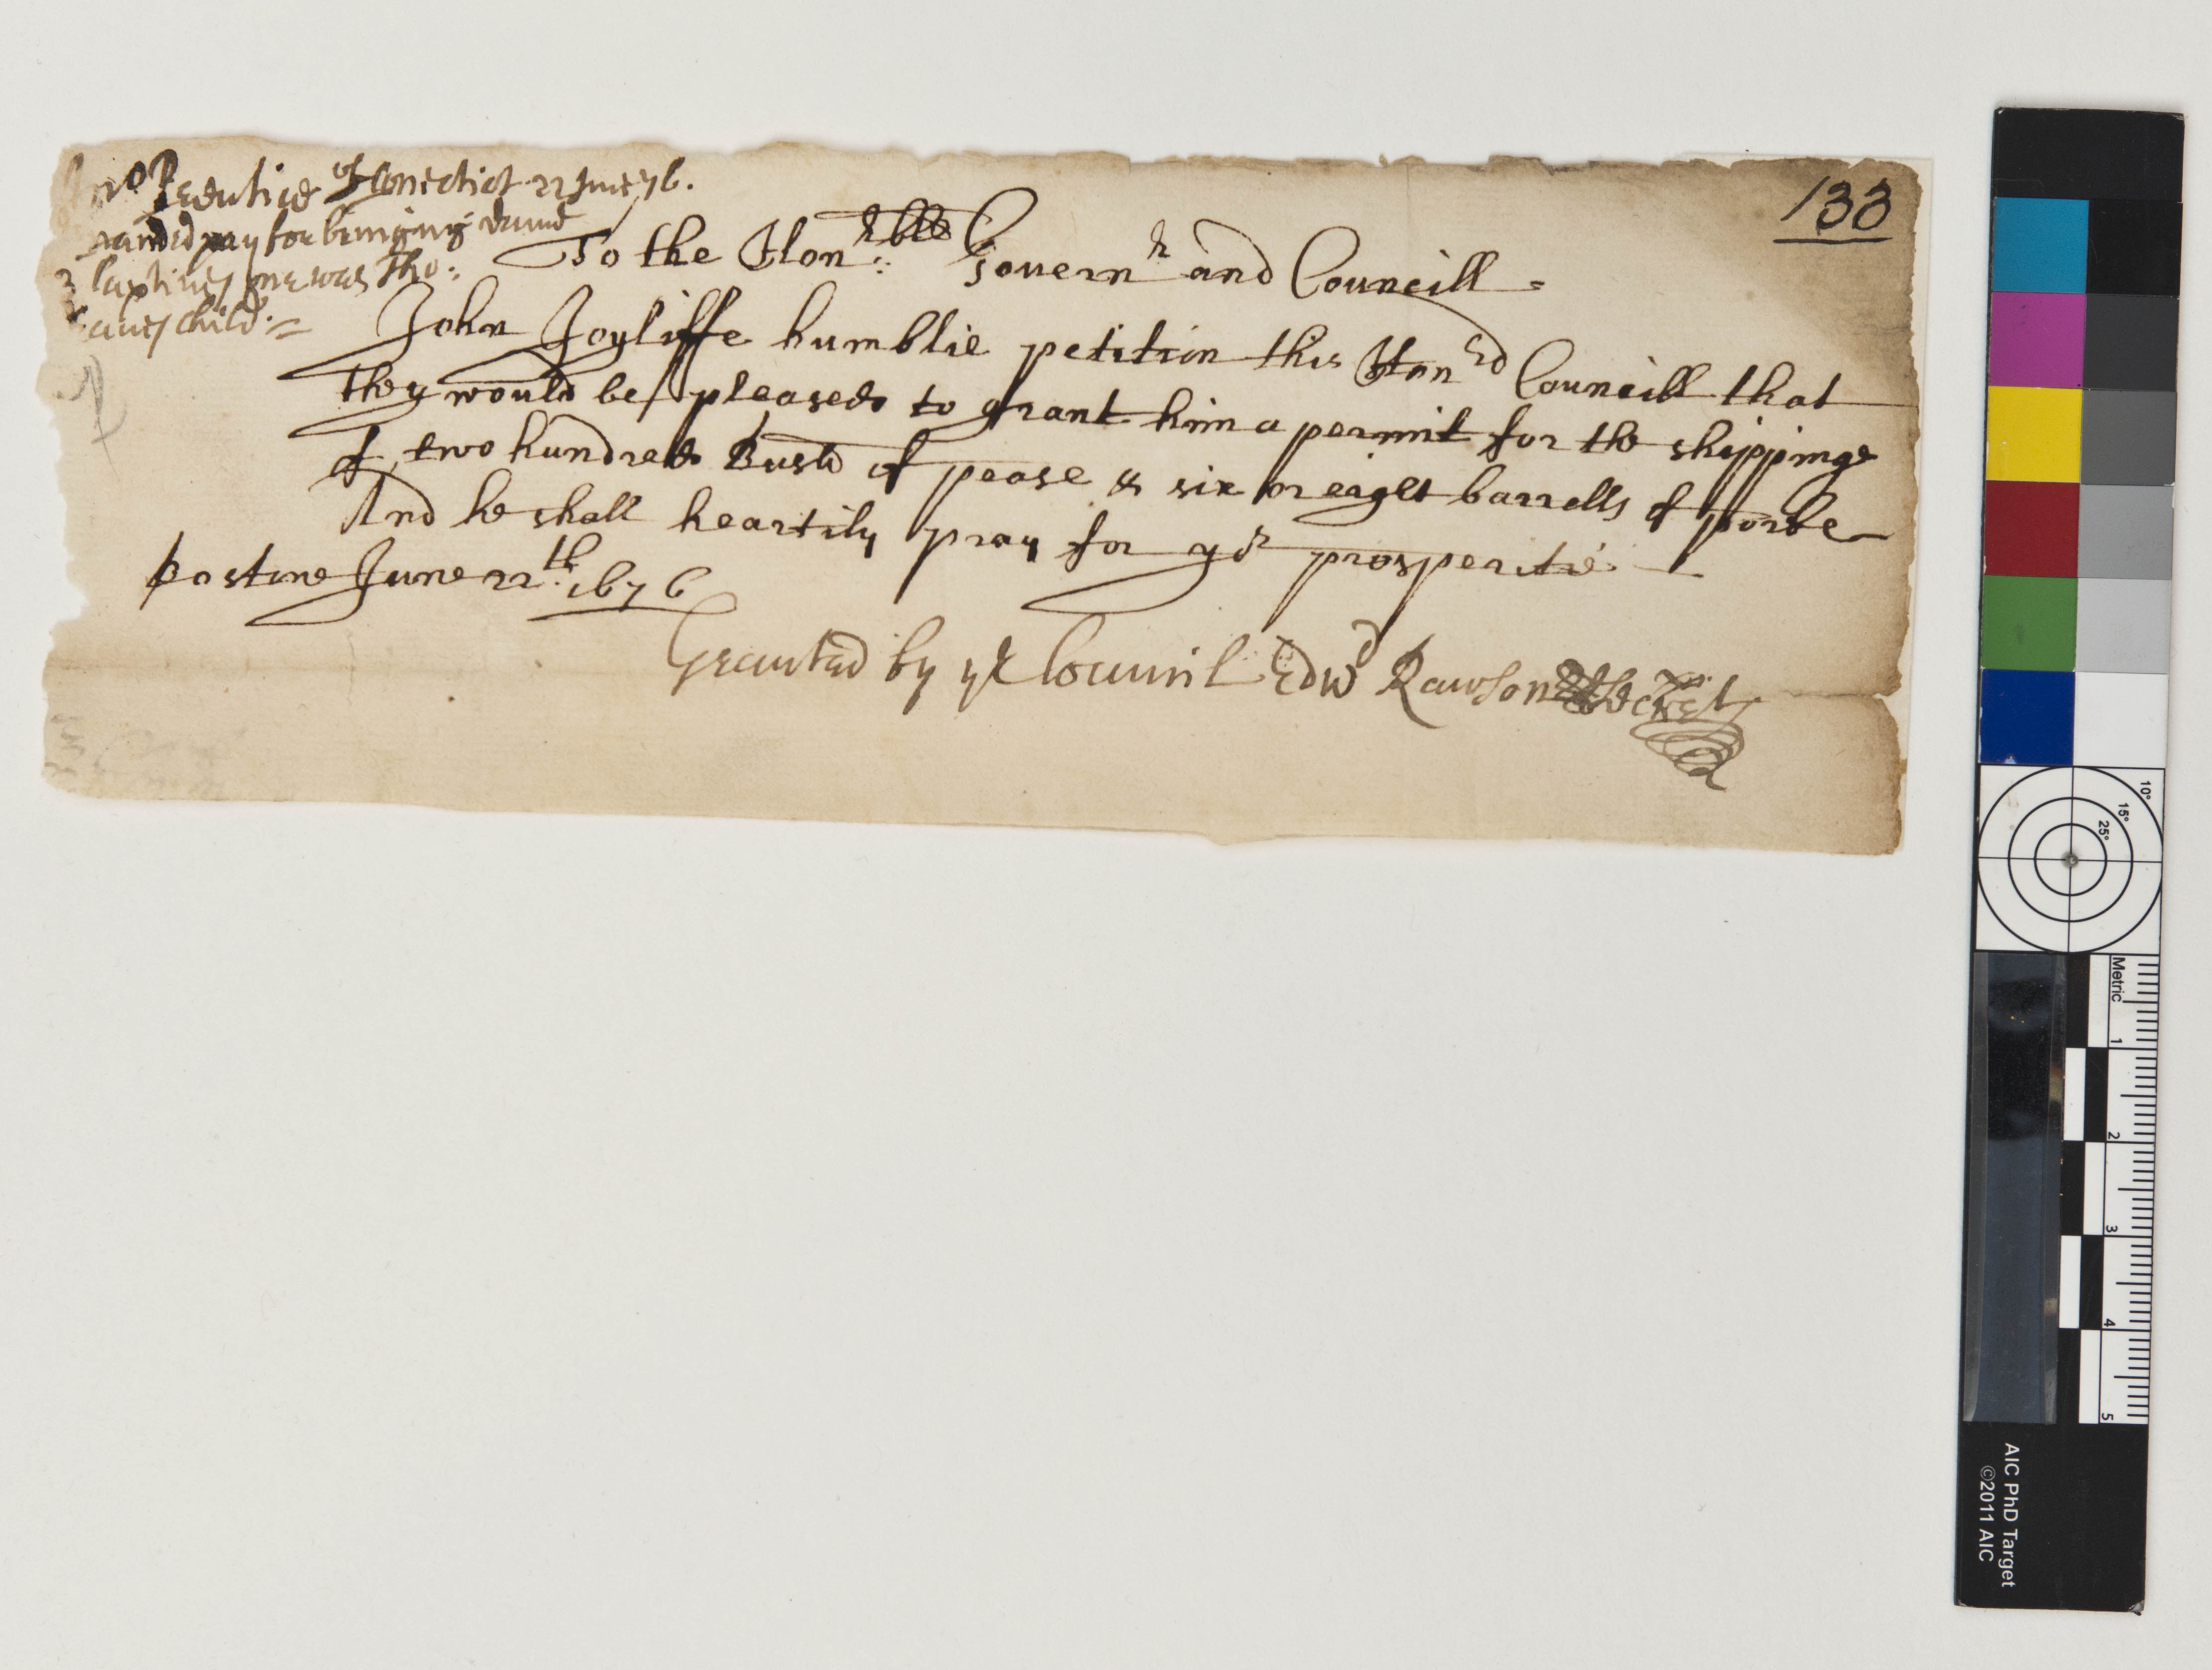 of Conectict 22 June 76.
pay for bringing downe
Captives one was Tho:
child.=
133
To the Hon:rble Govern:r and Councill=
John Joyliffe humblie petition this Hon:rd Councill that
they would be pleased to grant him a permit for the shippinge
of two hundred Bush of pease & six or eaight barrells of porke
And he shall heartily pray for yor prosperitie.
bostone June 22th: 1676
Granted by ye Councill Edwd Rawson Secret
10°
15°
25°
Metric
1
2
3
4
5
AIC PhD Target
©2011 AIC